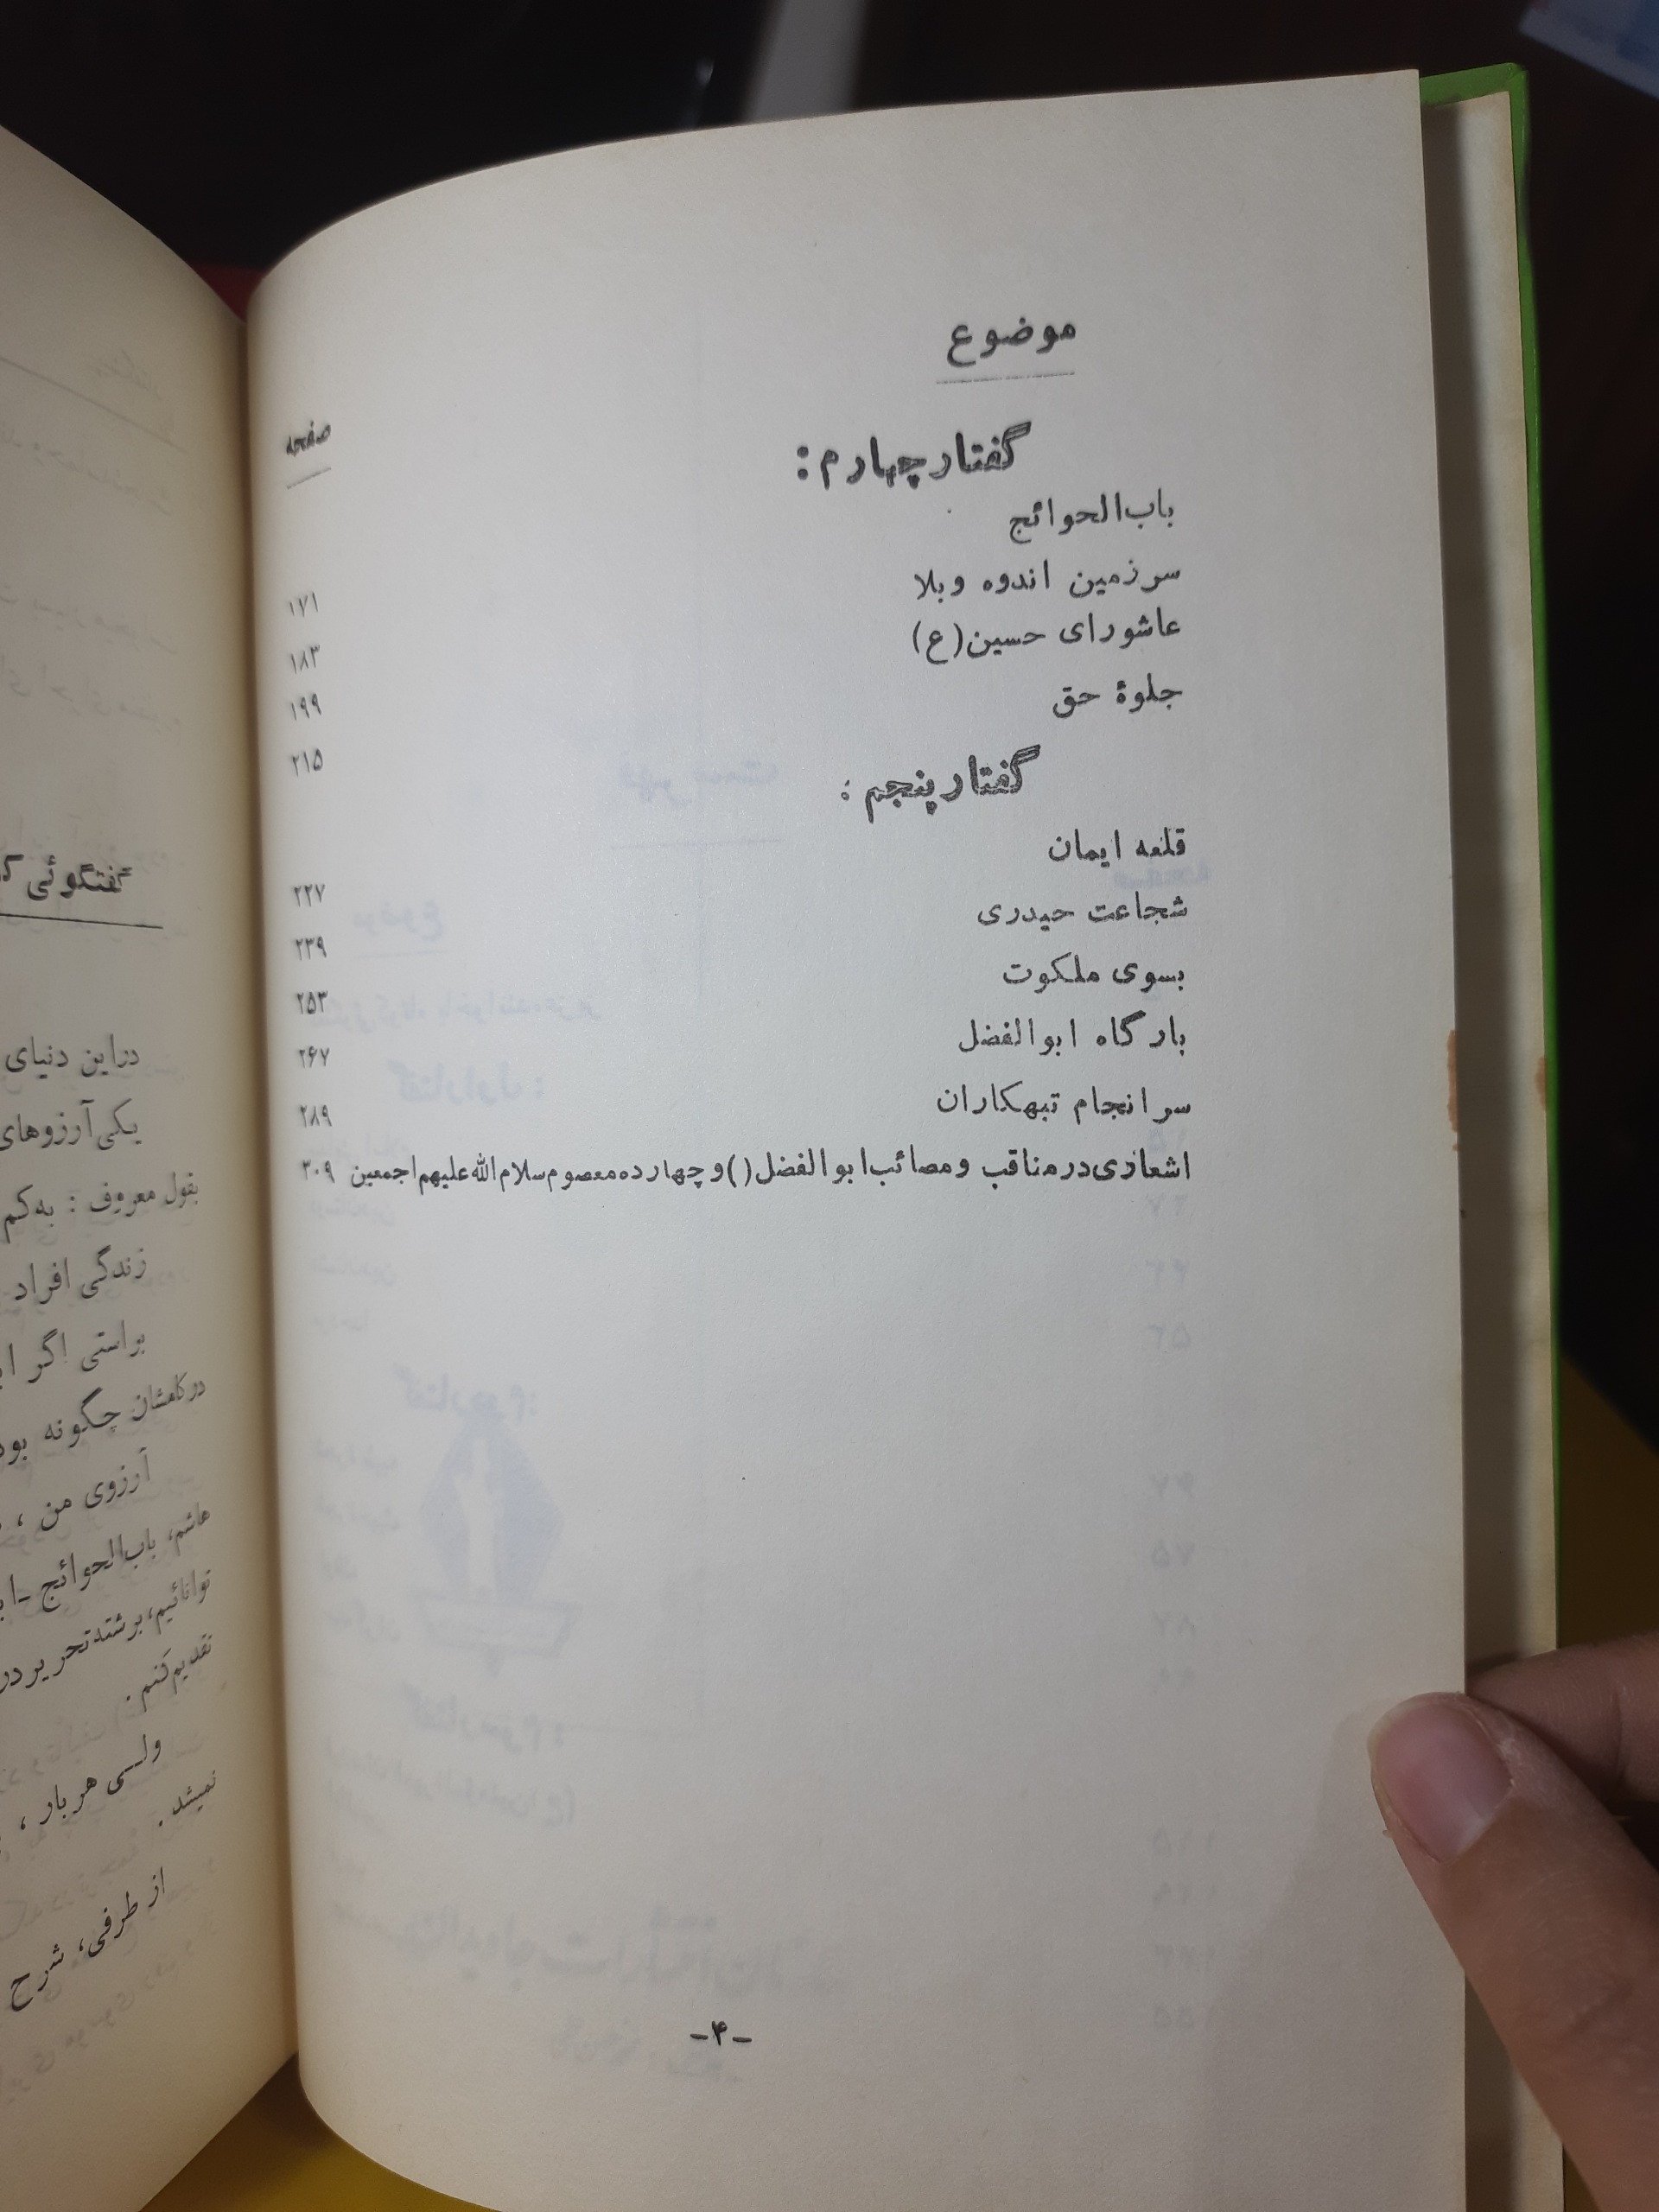 موضوع
صفحه
گفتار چهارم :
باب‌الحوائج ۱۷۱
سرزمین اندوه وبلا ۱۸۳
عاشورای حسین(ع) ۱۹۹
جلوهٔ حق ۲۱۵
گفتار پنجم :
قلعه ایمان ۲۲۷
شجاعت حیدری ۲۳۹
بسوی ملکوت ۲۵۳
بارگاه ابوالفضل ۲۶۷
سرانجام تبهکاران ۲۸۹
اشعاری در مناقب ومصائب ابوالفضل( )وچهارده معصوم سلام‌الله علیهم اجمعین ۳۰۹
-۴-
گفتگوئی
دراین دنیای
یکی آرزوهای
بقول معروف : به‌کم
زندگی افراد
براستی اگر
درکامشان چگونه
آرزوی من ،
هاشم، باب‌الحوائج -
توانائیم، برشته تحریر در
تقدیم کنم .
ولـی هربار ،
نمیشد .
از طرفی، شرح